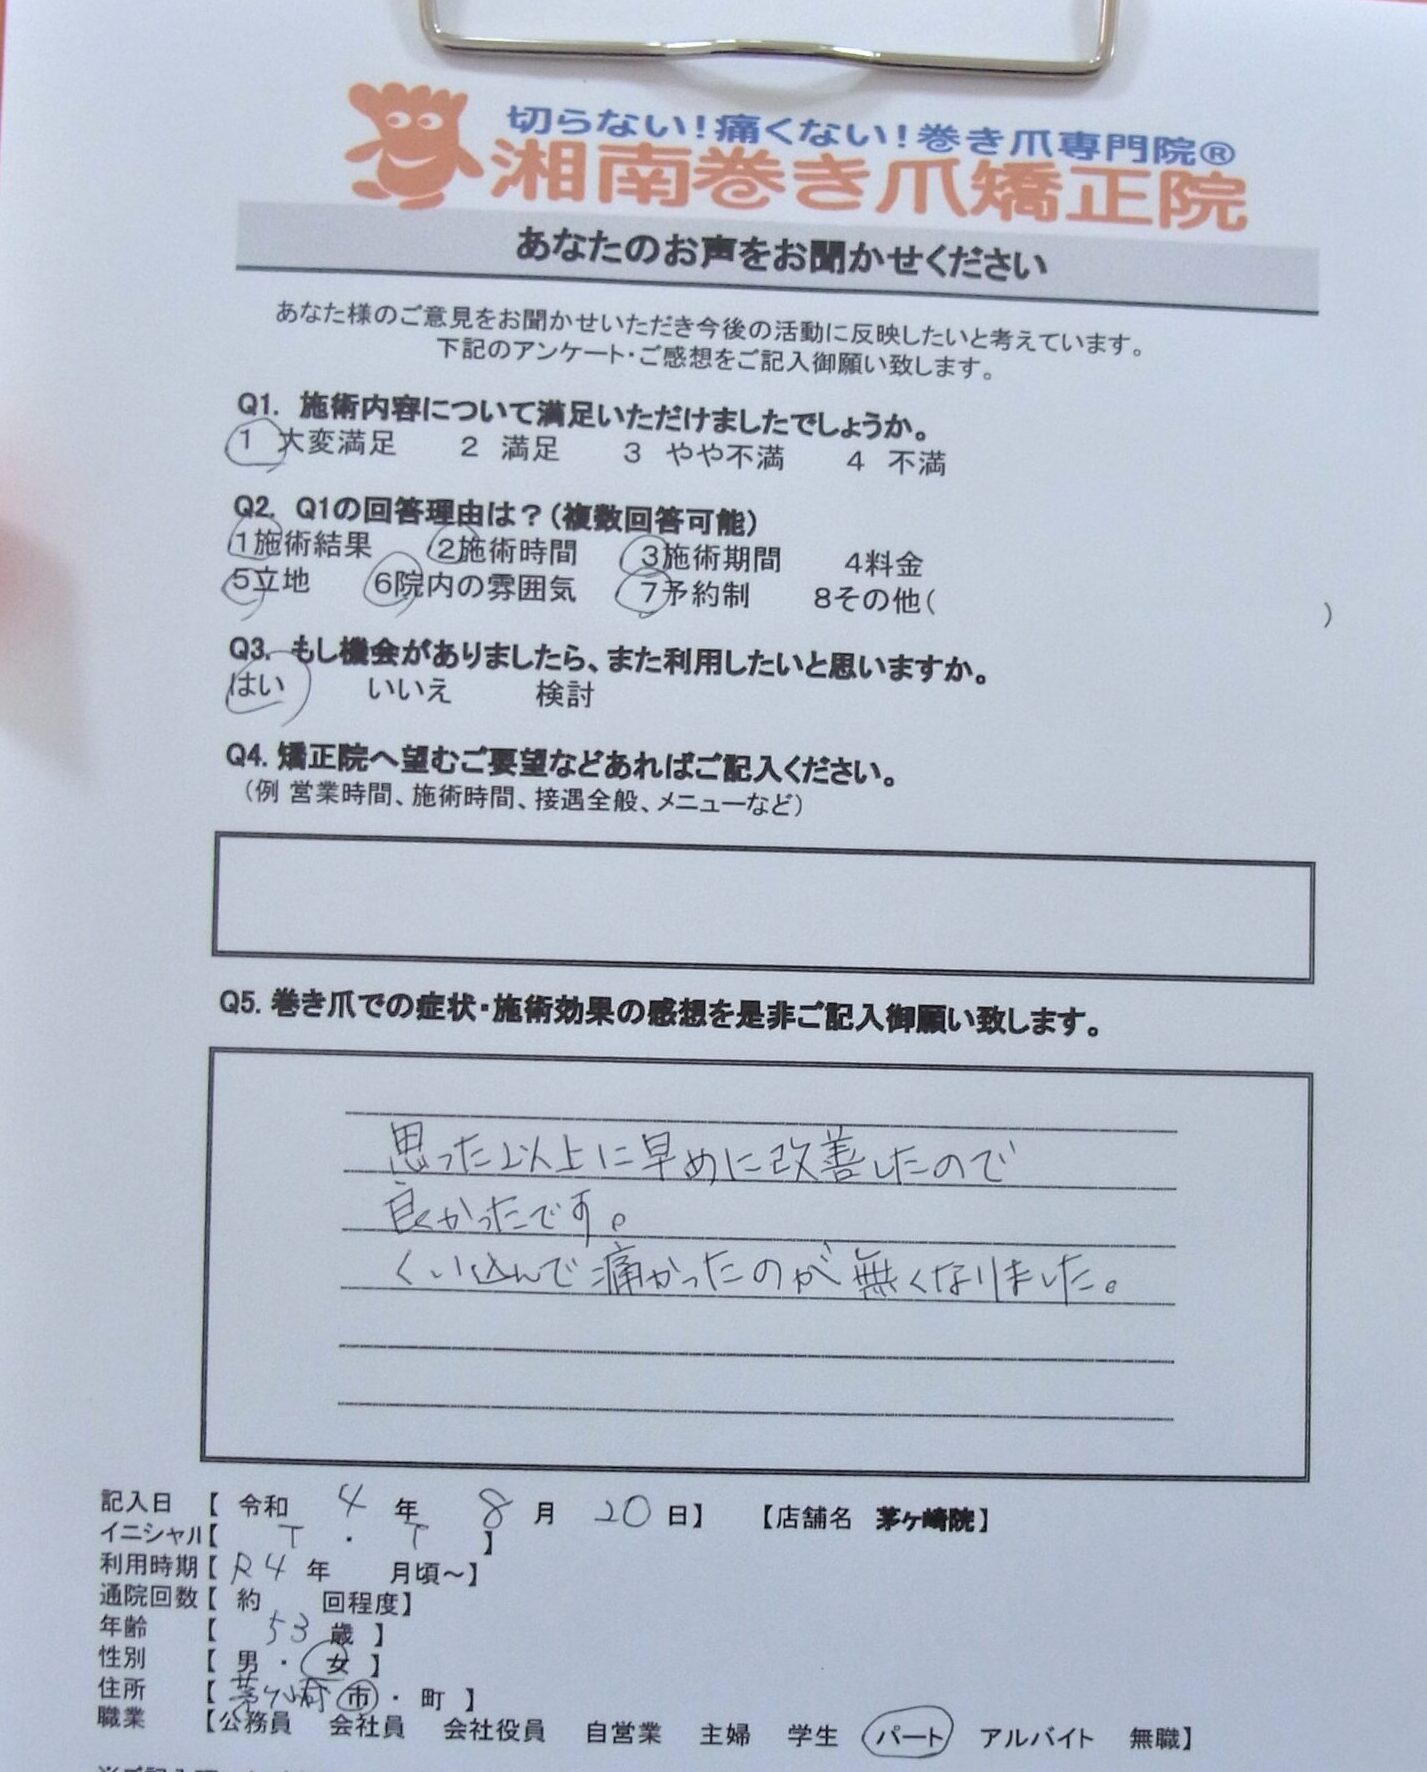 切らない!痛くない!巻き爪専門院®
湘南巻き爪矯正院
あなたのお声をお聞かせください
あなた様のご意見をお聞かせいただき今後の活動に反映したいと考えています。
下記のアンケート・ご感想をご記入御願い致します。
Q1. 施術内容について満足いただけましたでしょうか。
1 大変満足 2 満足 3 やや不満 4 不満
Q2. Q1の回答理由は?(複数回答可能)
1施術結果 2施術時間 3施術期間 4料金
5立地 6院内の雰囲気 7予約制 8その他( )
Q3. もし機会がありましたら、また利用したいと思いますか。
はい いいえ 検討
Q4. 矯正院へ望むご要望などあればご記入ください。
(例 営業時間、施術時間、接遇全般、メニューなど)
Q5. 巻き爪での症状・施術効果の感想を是非ご記入御願い致します。
思った以上に早めに改善したので
良かったです。
くい込んで痛かったのが無くなりました。
記入日 【 令和 4 年 8 月 20 日】 【店舗名 茅ヶ崎院】
イニシャル【 T ・ T 】
利用時期【 R4 年 月頃~】
通院回数【 約 回程度】
年齢 【 53 歳 】
性別 【 男 ・ 女 】
住所 【 茅ヶ崎 市 ・ 町 】
職業 【公務員 会社員 会社役員 自営業 主婦 学生 パート アルバイト 無職】